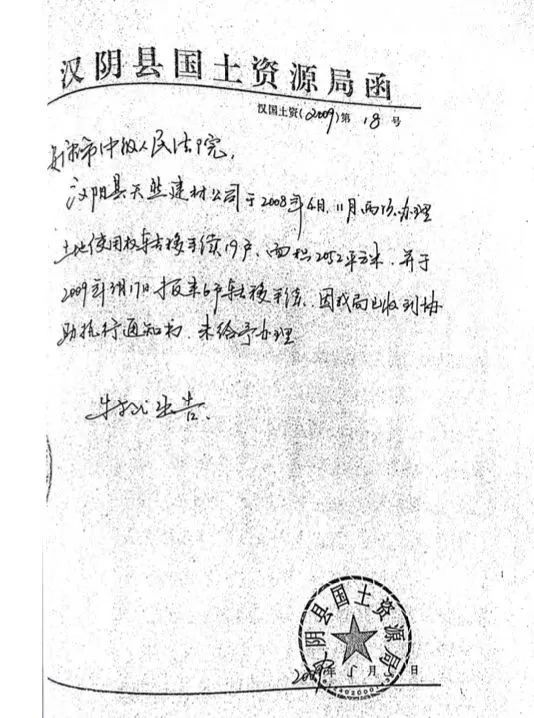 汉阴县国土资源局函
汉国土资(2009)第 18 号
安康市中级人民法院,
汉阴县天慧建材公司于2008年4月,11月两次办理
土地使用权转移手续19户、面积2052平方米,并于
2009年3月17日报来6户转移手续,因我局已收到协
助执行通知书,未给予办理
特此函告.
汉阴县国土资源局
2009年5月 日